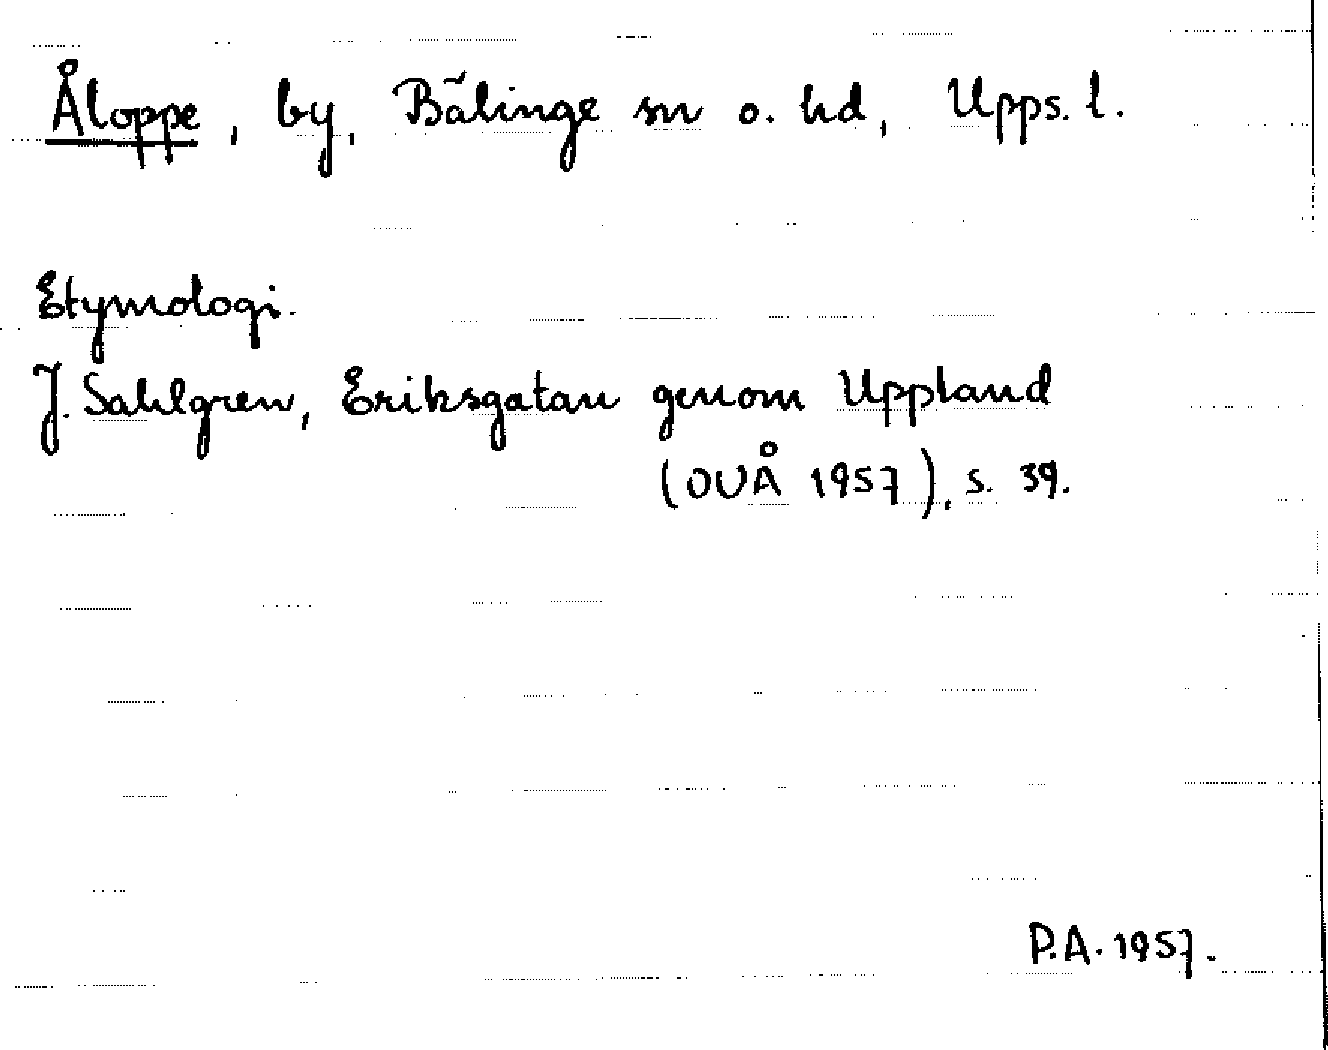 Åloppe, by, Bälinge sn o. hd, Upps. l.
Etymologi.
J. Sahlgren, Eriksgatan genom Uppland
(OUÅ 1957), s. 39.
P.A. 1957.